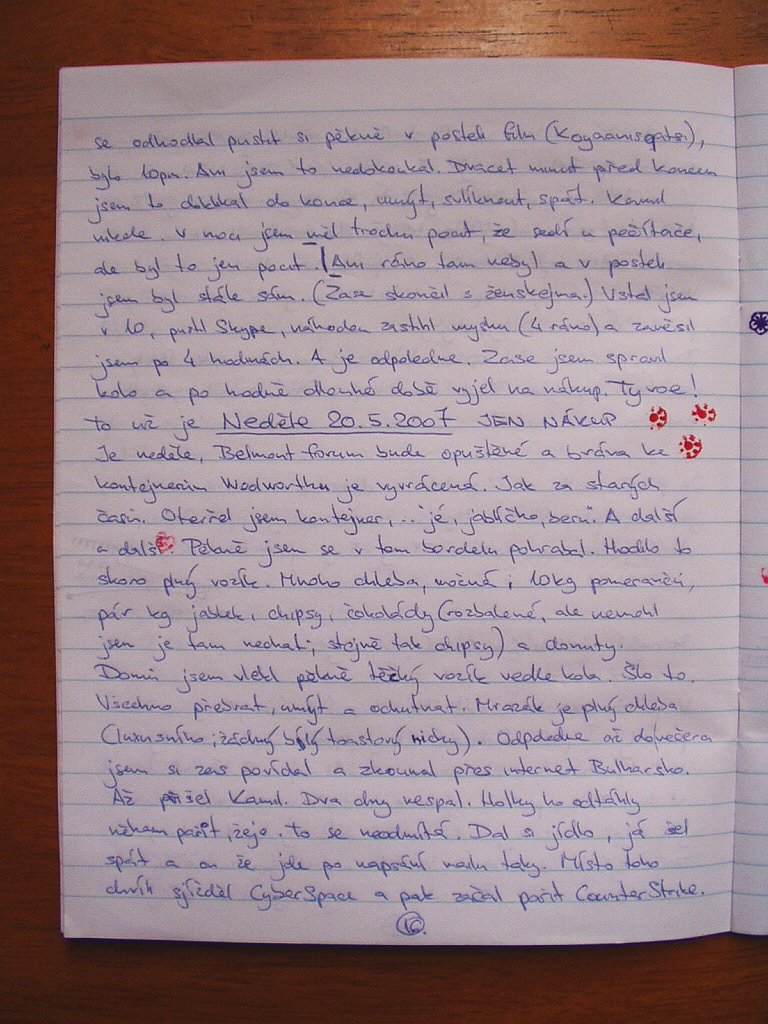 se odhodlal pustit si pěkně v posteli film (Koyaanisqatsi),
bylo 10pm. Ani jsem to nedokoukal. Dvacet minut před koncem
jsem to doklikal do konce, umýt, svlíknout, spát. Kamil
nikde. V noci jsem měl trochu pocit, že sedí u počítače,
ale byl to jen pocit. Ani ráno tam nebyl a v posteli
jsem byl stále sám. (Zase skončil s ženskejma.) Vstal jsem
v 10, pustil Skype, náhodou zastihl myshu (4 ráno) a zavěsil
jsem po 4 hodinách. A je odpoledne. Zase jsem spravil
kolo a po hodně dlouhé době vyjel na nákup. Ty voe!
to už je Neděle 20.5.2007 JEN NÁKUP
Je neděle, Belmont forum bude opuštěné a brána ke
kontejnerům Woolworthu je vyvrácená. Jak za starých
časů. Otevřel jsem kontejner, "jé, jablíčko, beru". A další
a další. Pěkně jsem se v tom bordelu pohrabal. Hodilo to
skoro plný vozík. Mnoho chleba, možná i 10kg pomerančů,
pár kg jablek, chipsy, čokolády (rozbalené, ale nemohl
jsem je tam nechat; stejně tak chipsy) a donuty.
Domů jsem vlekl pěkně těžký vozík vedle kola. Šlo to.
Všechno přebrat, umýt a ochutnat. Mrazák je plný chleba
(luxusního; žádný bílý toastový hičky). Odpoledne až do večera
jsem si zas povídal a zkoumal přes internet Bulharsko.
Až přišel Kamil. Dva dny nespal. Holky ho odtáhly
někam pařit, žeje. to se neodmítá. Dal si jídlo, já šel
spát a on že jde po napsání mailu taky. Místo toho
chvíli sjížděl CyberSpace a pak začal pařit CounterStrike.
16.